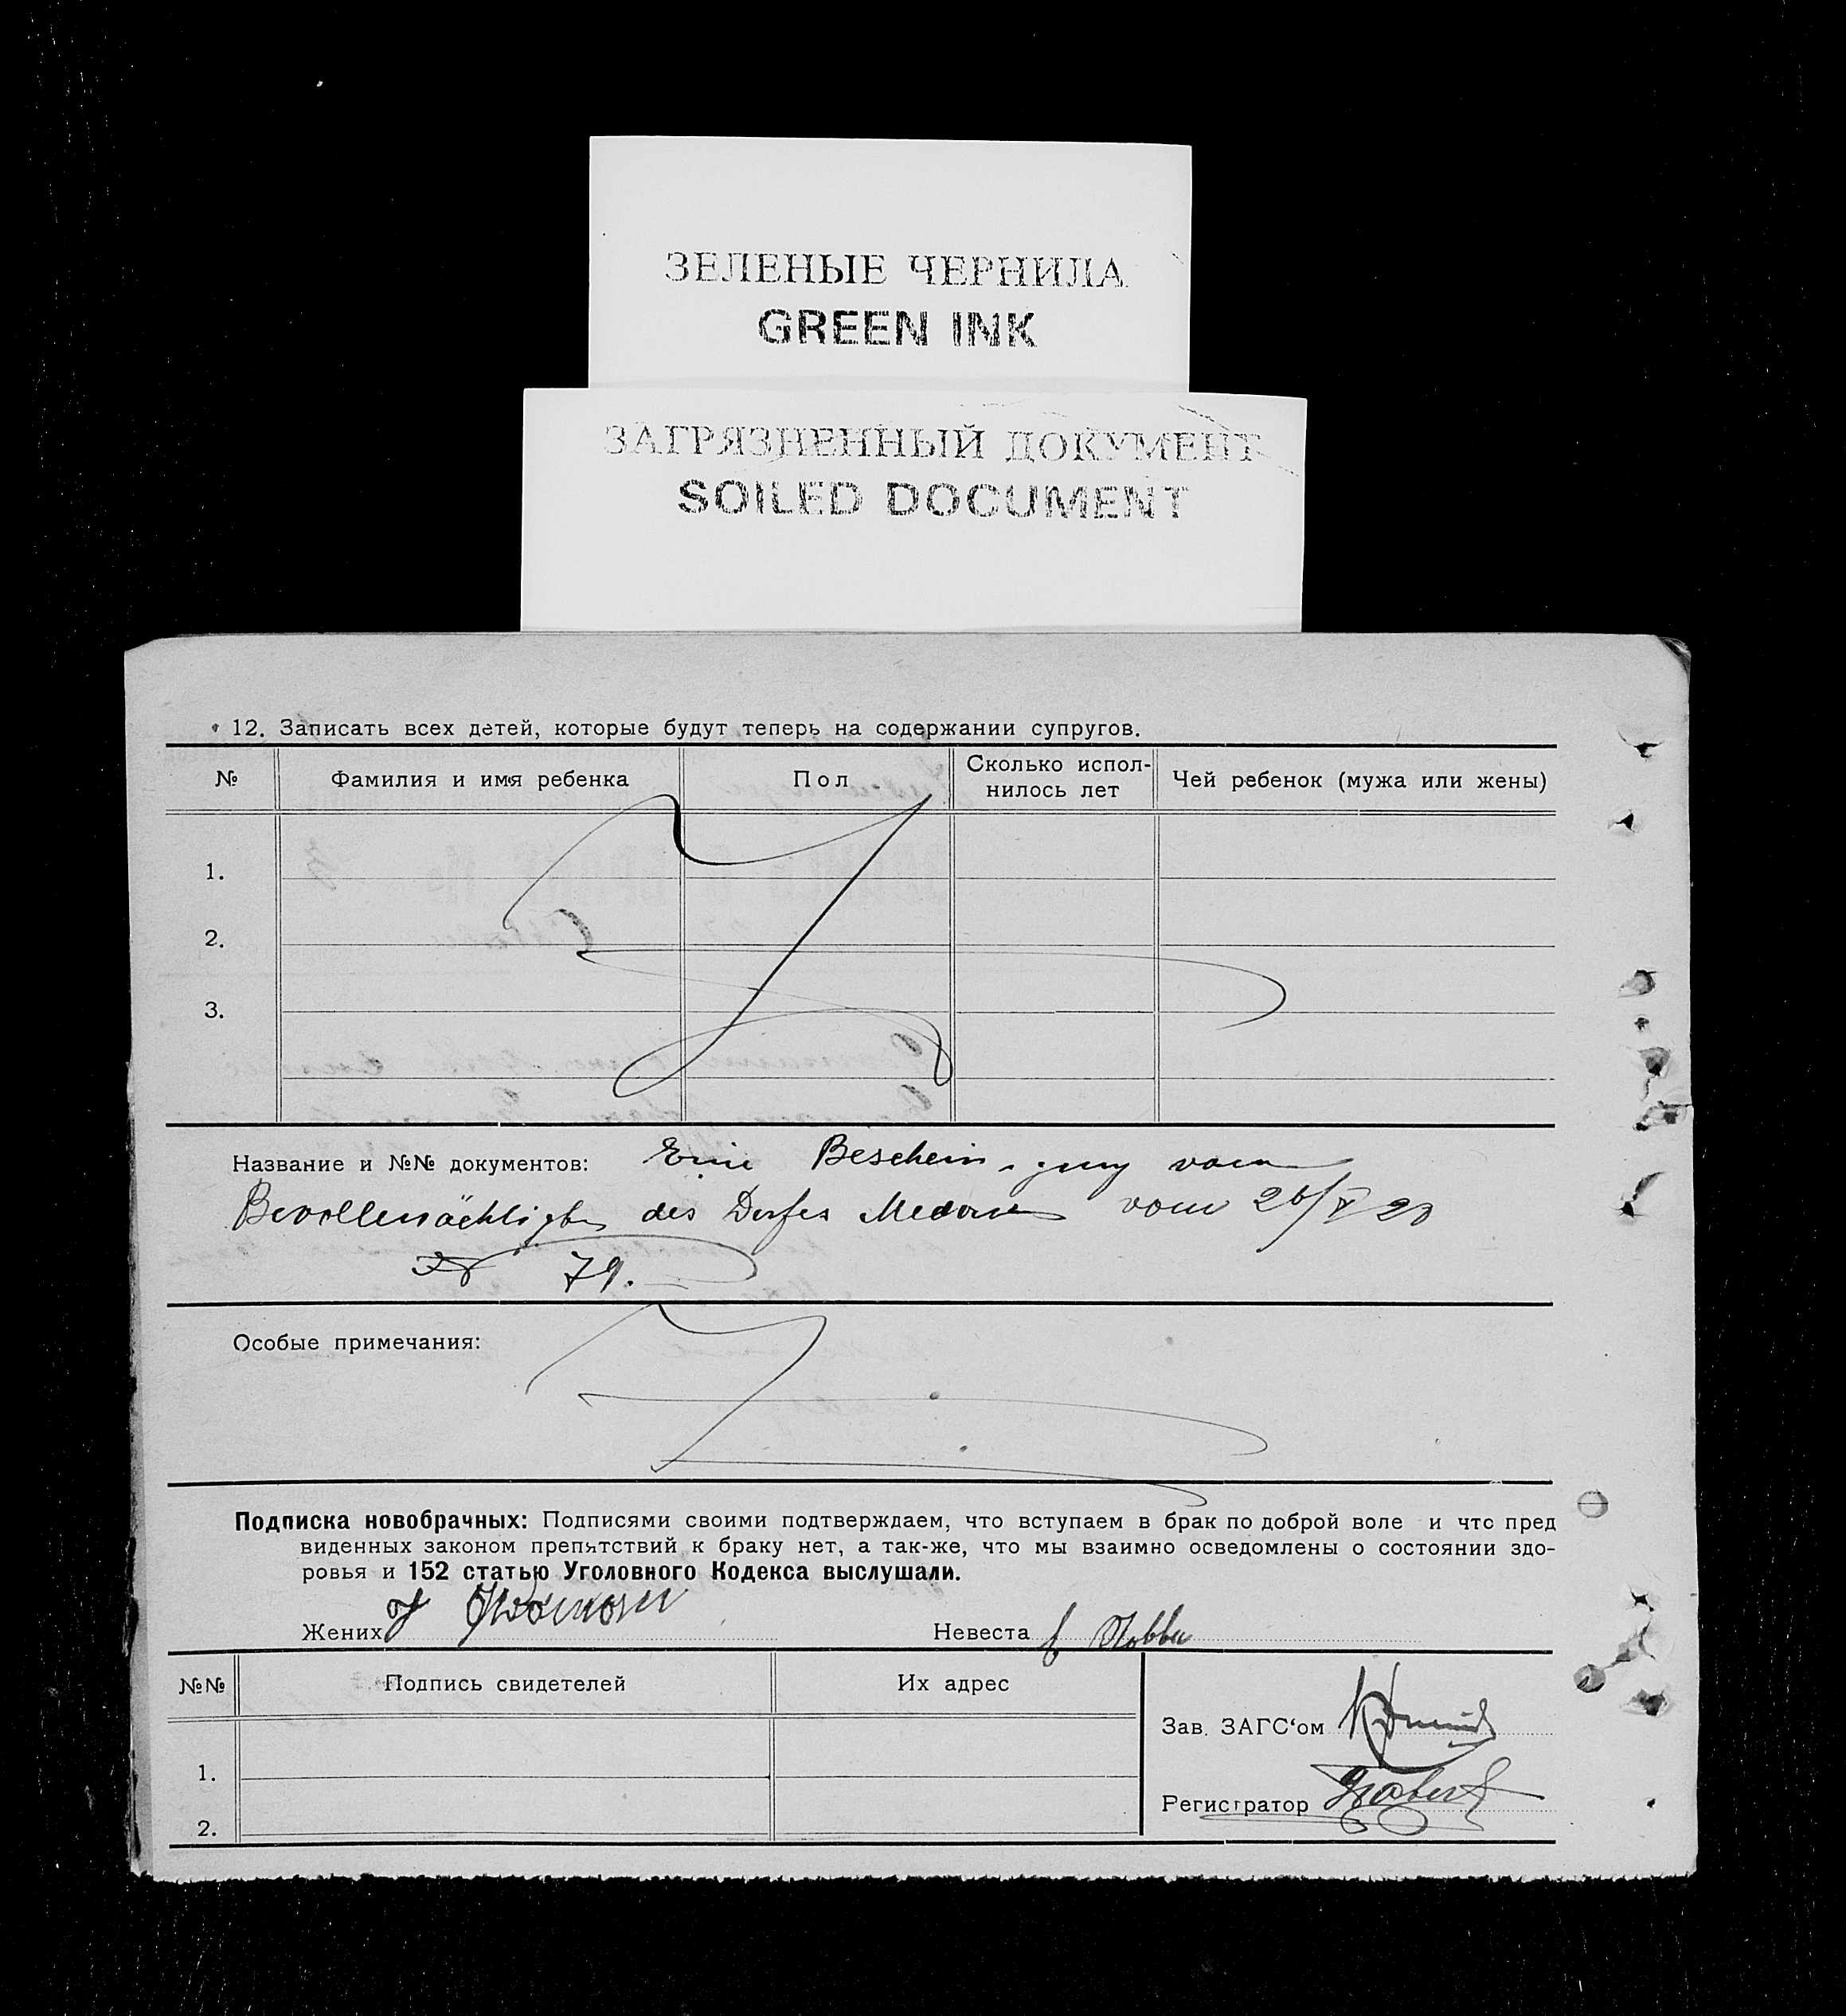 ЗЕЛЕНЫЕ ЧЕРНИЛА
GREEN INK
ЗАГРЯЗНЕННЫЙ ДОКУМЕНТ
SOILED DOCUMENT
12. Записать всех детей, которые будут теперь на содержании супругов.
№ Фамилия и имя ребенка Пол Сколько испол-нилось лет Чей ребенок (мужа или жены)
1.
2.
3.
Название и №№ документов: Eine Bescheinigung vom
Bevollmächtigten des Dorfes vom 26/X 28
№ 79.
Особые примечания:
Подписка новобрачных: Подписями своими подтверждаем, что вступаем в брак по доброй воле и что пред
виденных законом препятствий к браку нет, а так-же, что мы взаимно осведомлены о состоянии здо-
ровья и 152 статью Уголовного Кодекса выслушали.
Жених Невеста
№№ Подпись свидетелей Их адрес
Зав. ЗАГС‘ом
1.
Регистратор
2.